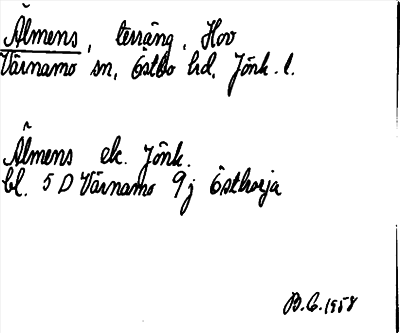 Älmens, terräng, Hov
Värnamo sn, Östbo hd, Jönk. l.
Älmens ek. Jönk.
bl. 5 D Värnamo 9j Östhorja
B.C. 1958